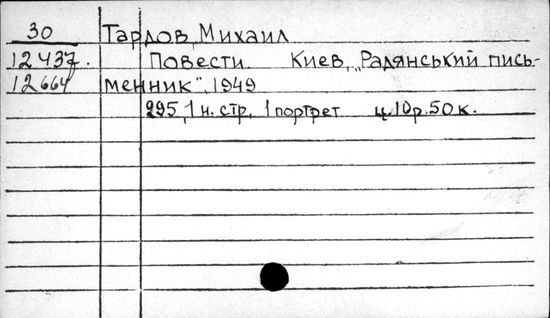 30 Тардов, Михаил
12437. Повести. Киев, „Радянський пись-
12664 менник", 1949
295, 1 н. стр, 1 портрет ц. 10р. 50к.